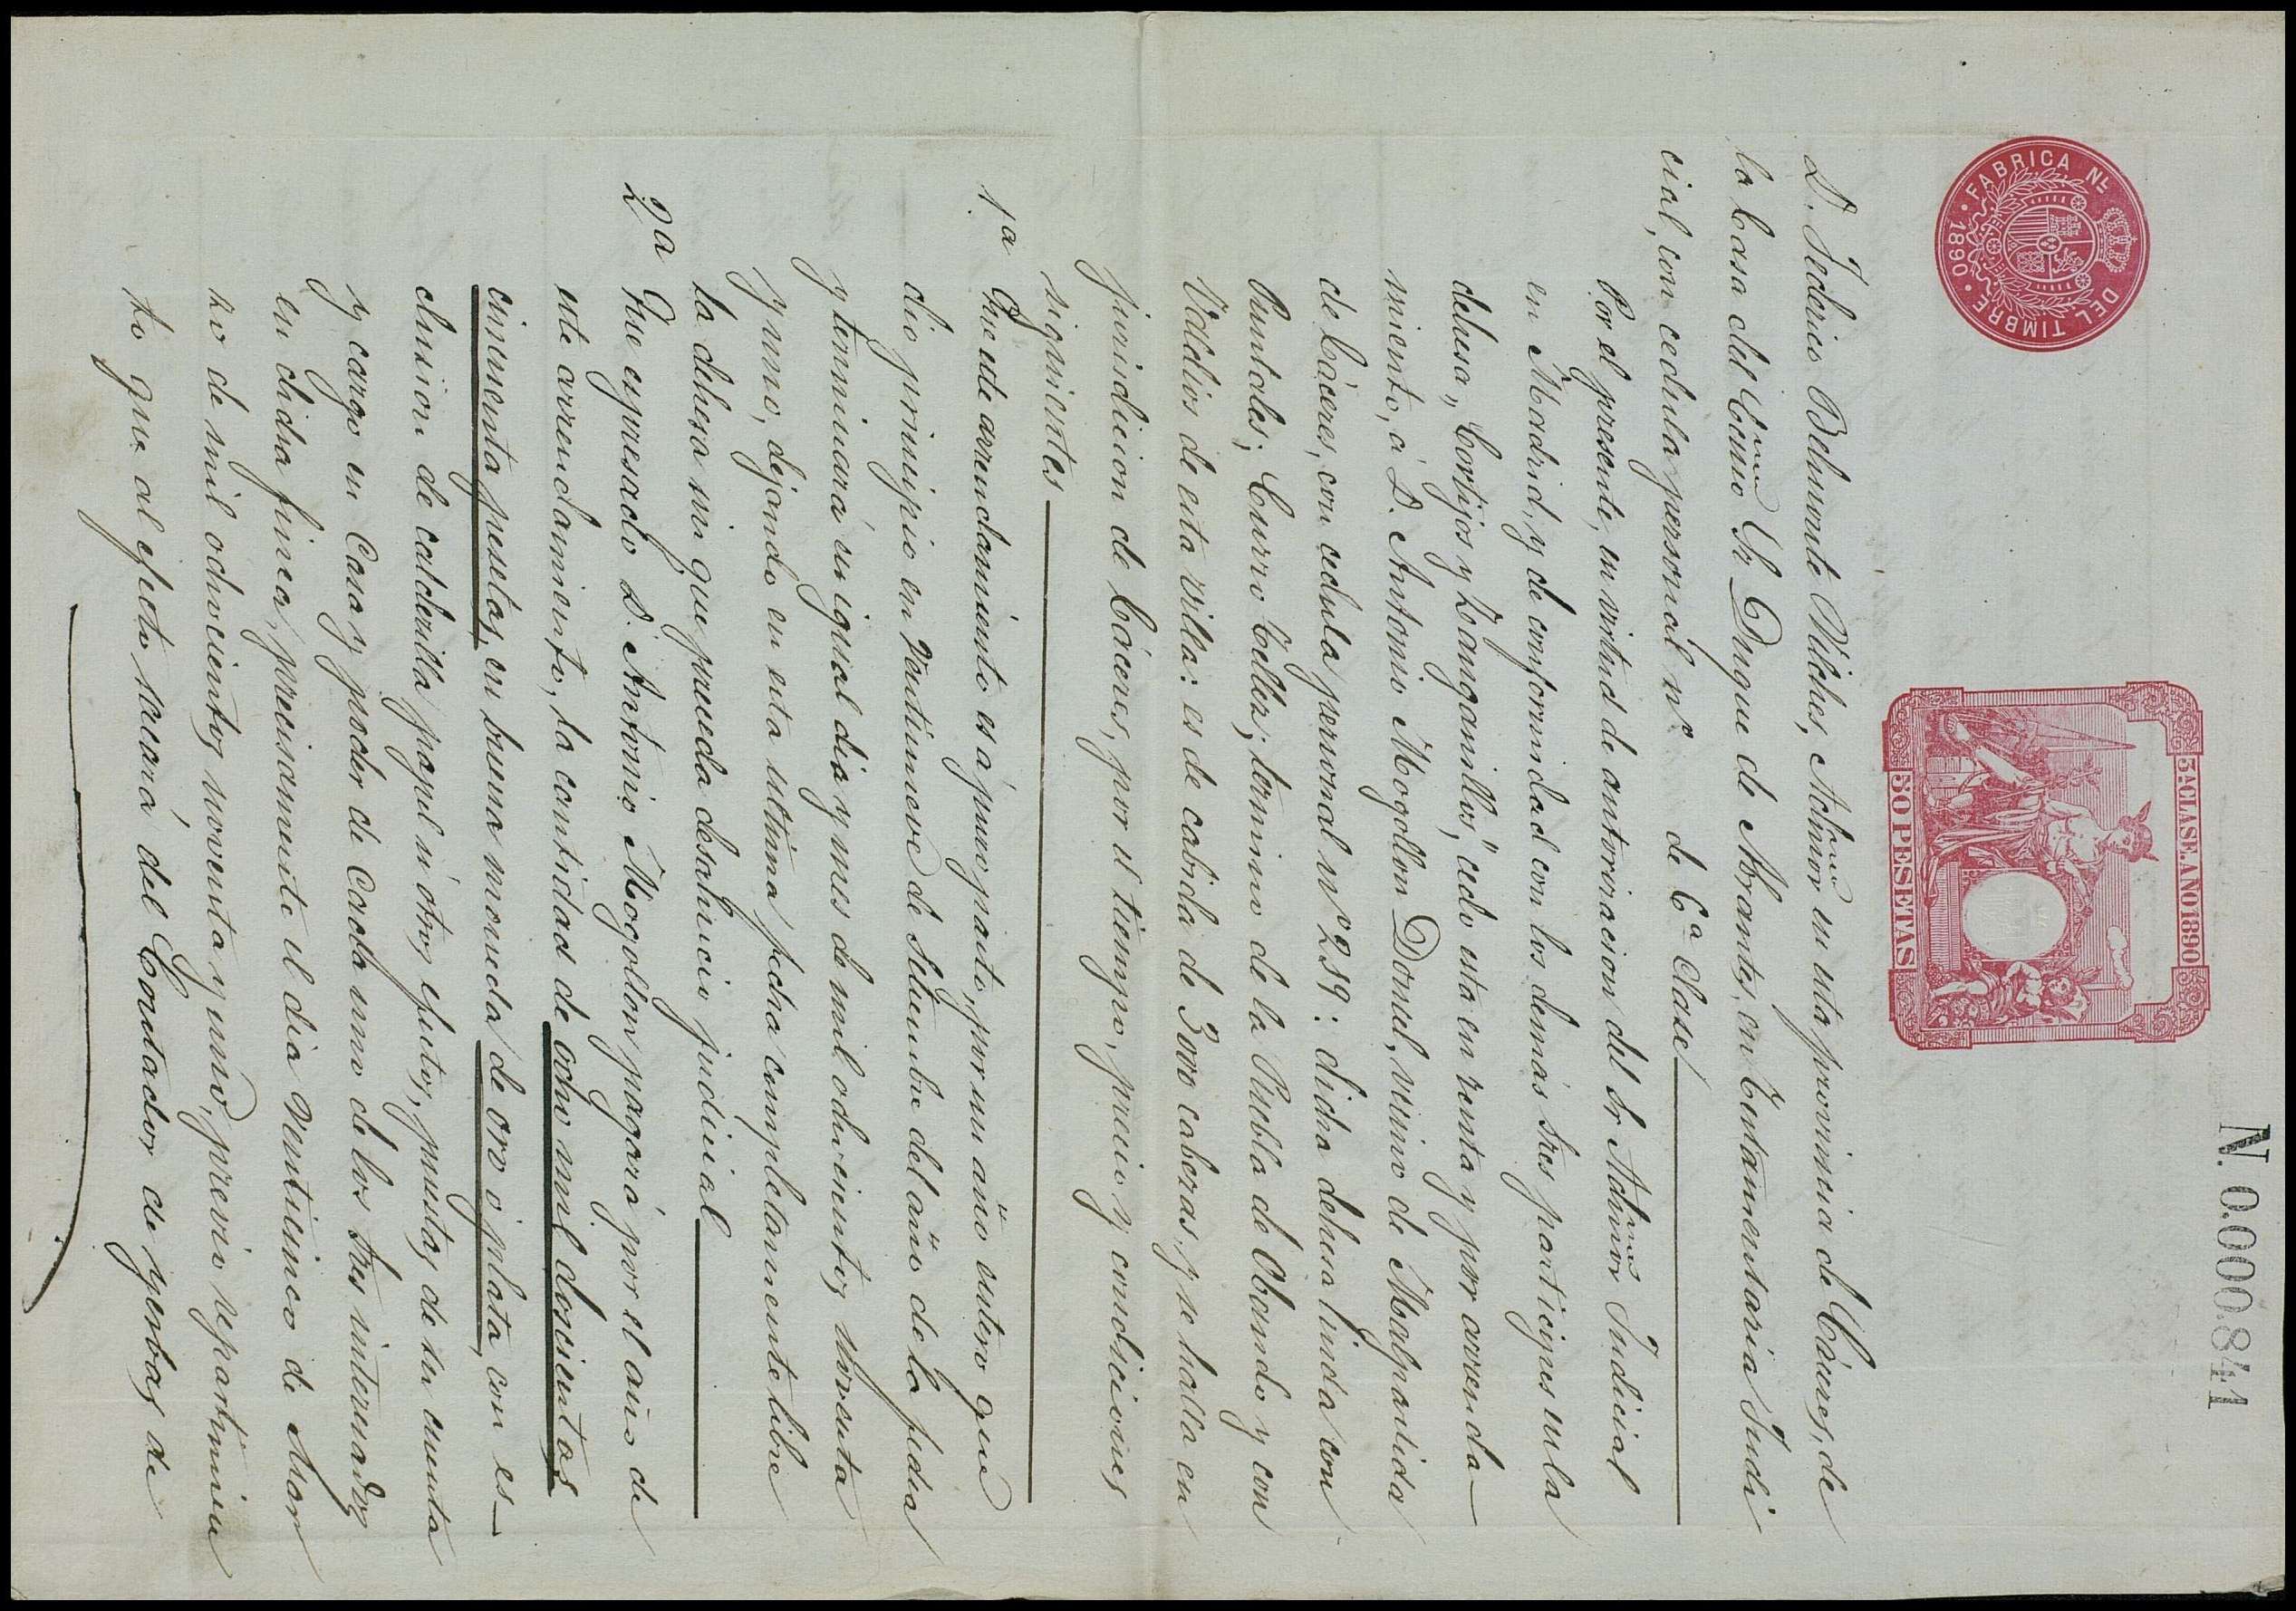 N. 0.000.841
FABRICA NL. DEL TIMBRE 1890
5ª CLASE. AÑO 1890
50 PESETAS
D. Federico Belmonte Vilches, Admor en esta provincia de Cáceres, de
la Casa del Excmo Sr Duque de Abrantes, en Testamentaría Judi
cial, con cedula personal nº de 6ª clase
Por el presente, en virtud de autorizacion del Sr Admor Judicial
en Madrid, y de conformidad con los demás Sres participes en la
dehesa, "Cortijos y Zanganillos," cedo esta en renta y por arrenda-
miento, á D. Antonio Mogollon Donsel, vecino de Malpartida
de Cáceres, con cedula personal nº 259: dicha dehesa linda con
Puntales; Curro Tellez; termino de la Puebla de Obando y con
Valdios de esta villa: es de cabida de 3000 cabezas, y se halla en
jurisdiccion de Cáceres, por el tiempo, precio y condiciones
siguientes
1.ª Que este arrendamiento es á puro pasto, por un año entero que
dio principio en Ventinueve de Setiembre del año de la fecha
y terminará en igual dia y mes de mil ochocientos noventa
y uno, dejando en esta ultima fecha completamente libre
la dehesa sin que pueda desahucio judicial
2ª Que expresado D. Antonio Mogollon pagará por el año de
este arrendamiento, la cantidad de ocho mil doscientas
cincuenta pesetas, en buena moneda de oro ó plata, con es-
clusion de calderilla papel ú otros efectos, puestas de su cuenta
y cargo en Casa y poder de Cada uno de los Sres interesados
en dicha finca, precisamente el dia Venticinco de Mar
zo de mil ochocientos noventa y uno, previo repartimien
to que al efecto sacará del Contador de yerbas de